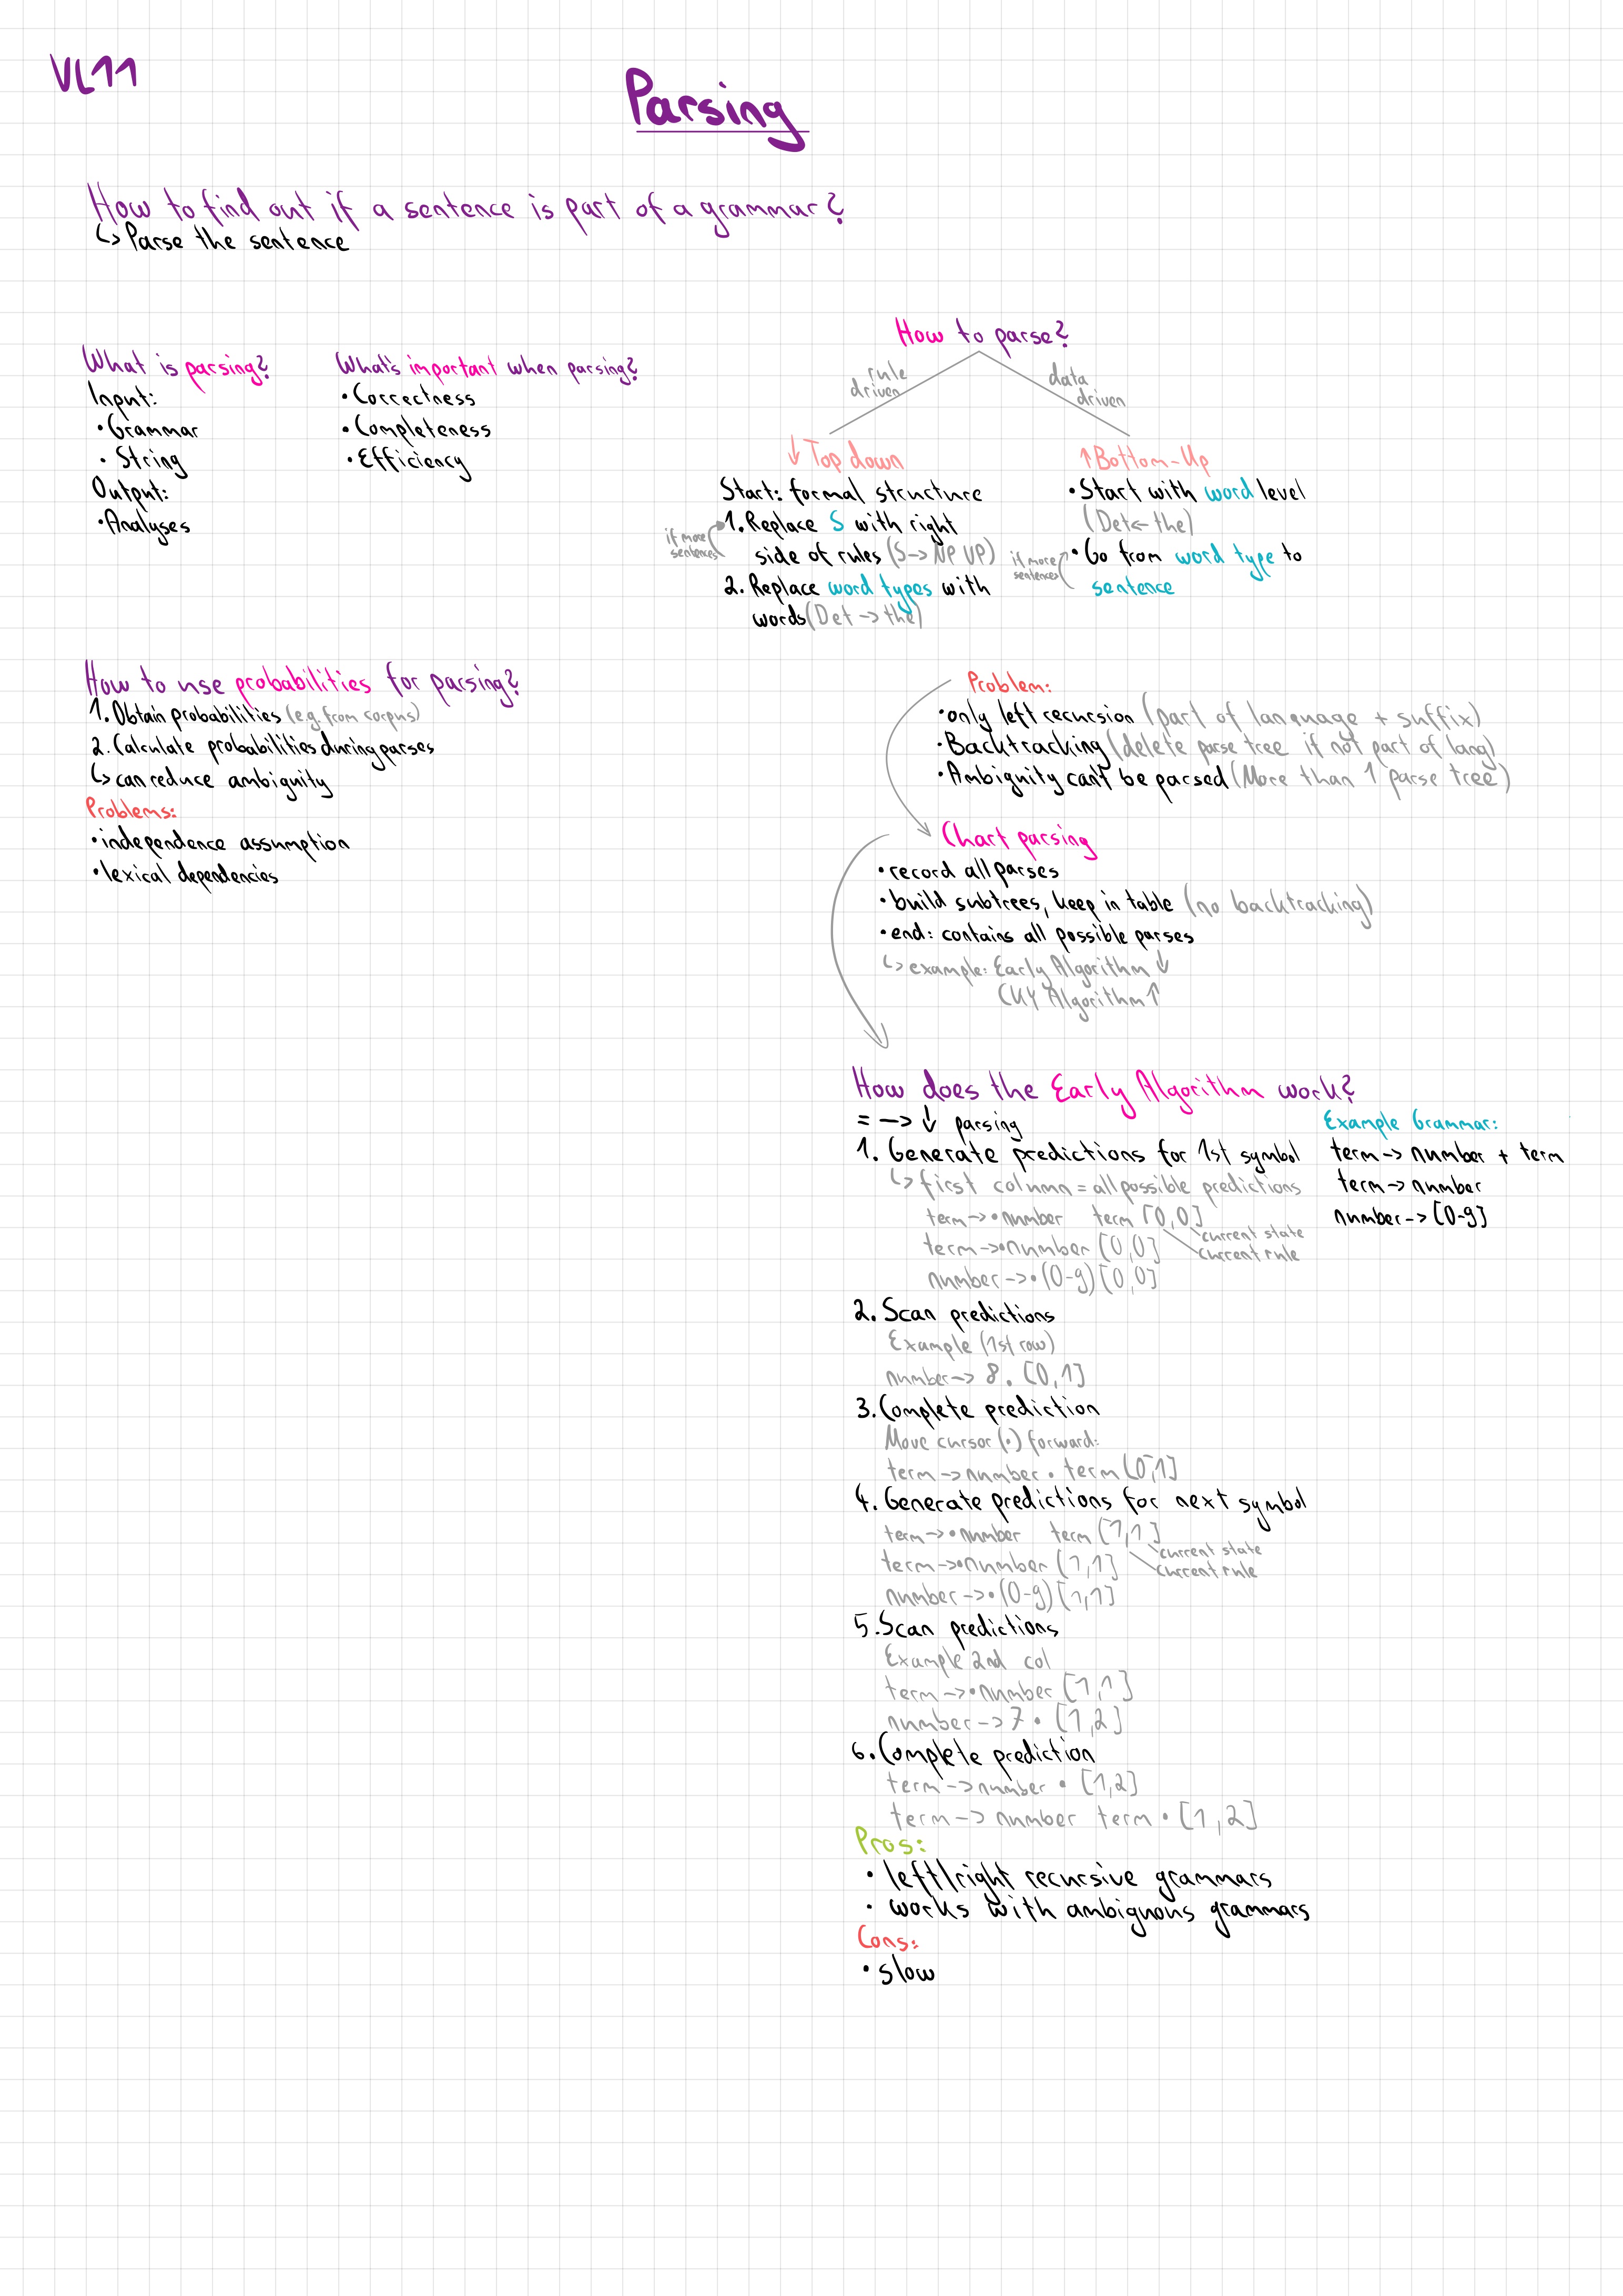 VL11
Parsing
How to find out if a sentence is part of a grammar?
↳ Parse the sentence
What is parsing?
Input:
• Grammar
• String
Output:
• Analyses
What's important when parsing?
• Correctness
• Completeness
• Efficiency
How to parse?
rule driven
data driven
↓ Top down
Start: formal structure
1. Replace S with right
side of rules (S -> NP VP)
if more sentences
2. Replace word types with
words (Det -> the)
↑ Bottom-Up
• Start with word level
(Det <- the)
• Go from word type to
sentence
if more sentences
How to use probabilities for parsing?
1. Obtain probabilities (e.g. from corpus)
2. Calculate probabilities during parses
↳ can reduce ambiguity
Problems:
• independence assumption
• lexical dependencies
Problem:
• only left recursion (part of language + suffix)
• Backtracking (delete parse tree if not part of lang)
• Ambiguity can't be parsed (More than 1 parse tree)
Chart parsing
• record all parses
• build subtrees, keep in table (no backtracking)
• end: contains all possible parses
↳ example: Early Algorithm ↓
CKY Algorithm ↑
How does the Early Algorithm work?
= -> ↓ parsing
1. Generate predictions for 1st symbol
↳ first column = all possible predictions
term -> • number term [0,0]
current state
term -> • number [0,0]
current rule
number -> • (0-9) [0,0]
Example Grammar:
term -> number + term
term -> number
number -> [0-9]
2. Scan predictions
Example (1st row)
number -> 8 . [0,1]
3. Complete prediction
Move cursor (•) forward:
term -> number • term [0,1]
4. Generate predictions for next symbol
term -> • number term [1,1]
current state
term -> • number [1,1]
current rule
number -> • (0-9) [1,1]
5. Scan predictions
Example 2nd col
term -> • number [1,1]
number -> 7 • [1,2]
6. Complete prediction
term -> number • [1,2]
term -> number term • [1,2]
Pros:
• left/right recursive grammars
• works with ambiguous grammars
Cons:
• slow